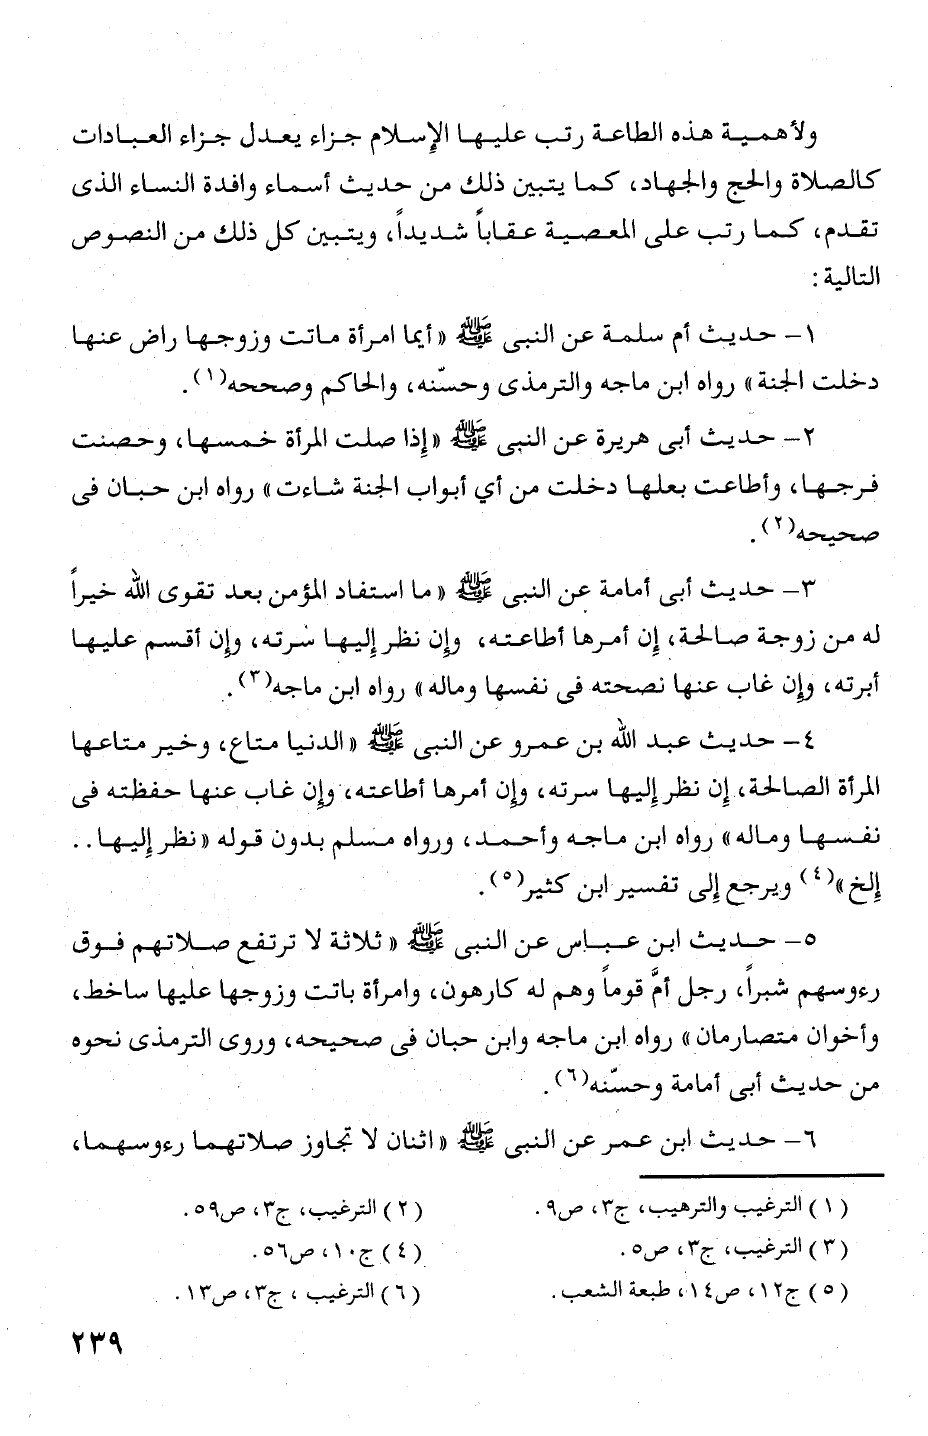 ولأهمية هذه الطاعة رتب عليها الإسلام جزاء يعدل جزاء العبادات
كالصلاة والحج والجهاد، كما يتبين ذلك من حديث أسماء وافدة النساء الذى
تقدم، كما رتب على المعصية عقاباً شديداً، ويتبين كل ذلك من النصوص
التالية :
١- حديث أم سلمة عن النبى ﷺ «أيما امرأة ماتت وزوجها راض عنها
دخلت الجنة» رواه ابن ماجه والترمذى وحسّنه، والحاكم وصححه(١).
٢- حديث أبى هريرة عن النبى ﷺ «إذا صلت المرأة خمسها، وحصنت
فرجها، وأطاعت بعلها دخلت من أي أبواب الجنة شاءت» رواه ابن حبان فى
صحيحه(٢).
٣- حديث أبى أمامة عن النبى ﷺ «ما استفاد المؤمن بعد تقوى الله خيراً
له من زوجة صالحة، إن أمرها أطاعته، وإن نظر إليها سُرته، وإن أقسم عليها
أبرته، وإن غاب عنها نصحته فى نفسها وماله» رواه ابن ماجه(٣).
٤- حديث عبد الله بن عمرو عن النبى ﷺ «الدنيا متاع، وخير متاعها
المرأة الصالحة، إن نظر إليها سرته، وإن أمرها أطاعته، وإن غاب عنها حفظته فى
نفسها وماله» رواه ابن ماجه وأحمد، ورواه مسلم بدون قوله «نظر إليها..
إلخ»(٤) ويرجع إلى تفسير ابن كثير(٥).
٥- حديث ابن عباس عن النبى ﷺ «ثلاثة لا ترتفع صلاتهم فوق
رءوسهم شبراً، رجل أمَّ قوماً وهم له كارهون، وامرأة باتت وزوجها عليها ساخط،
وأخوان متصارمان» رواه ابن ماجه وابن حبان فى صحيحه، وروى الترمذى نحوه
من حديث أبى أمامة وحسّنه(٦).
٦- حديث ابن عمر عن النبى ﷺ «اثنان لا تجاوز صلاتهما رءوسهما،
(١) الترغيب والترهيب، ج٣، ص٩. (٢) الترغيب، ج٣، ص٥٩.
(٣) الترغيب، ج٣، ص٥. (٤) ج١٠، ص٥٦.
(٥) ج١٢، ص١٤، طبعة الشعب. (٦) الترغيب ، ج٣، ص١٣.
٢٣٩